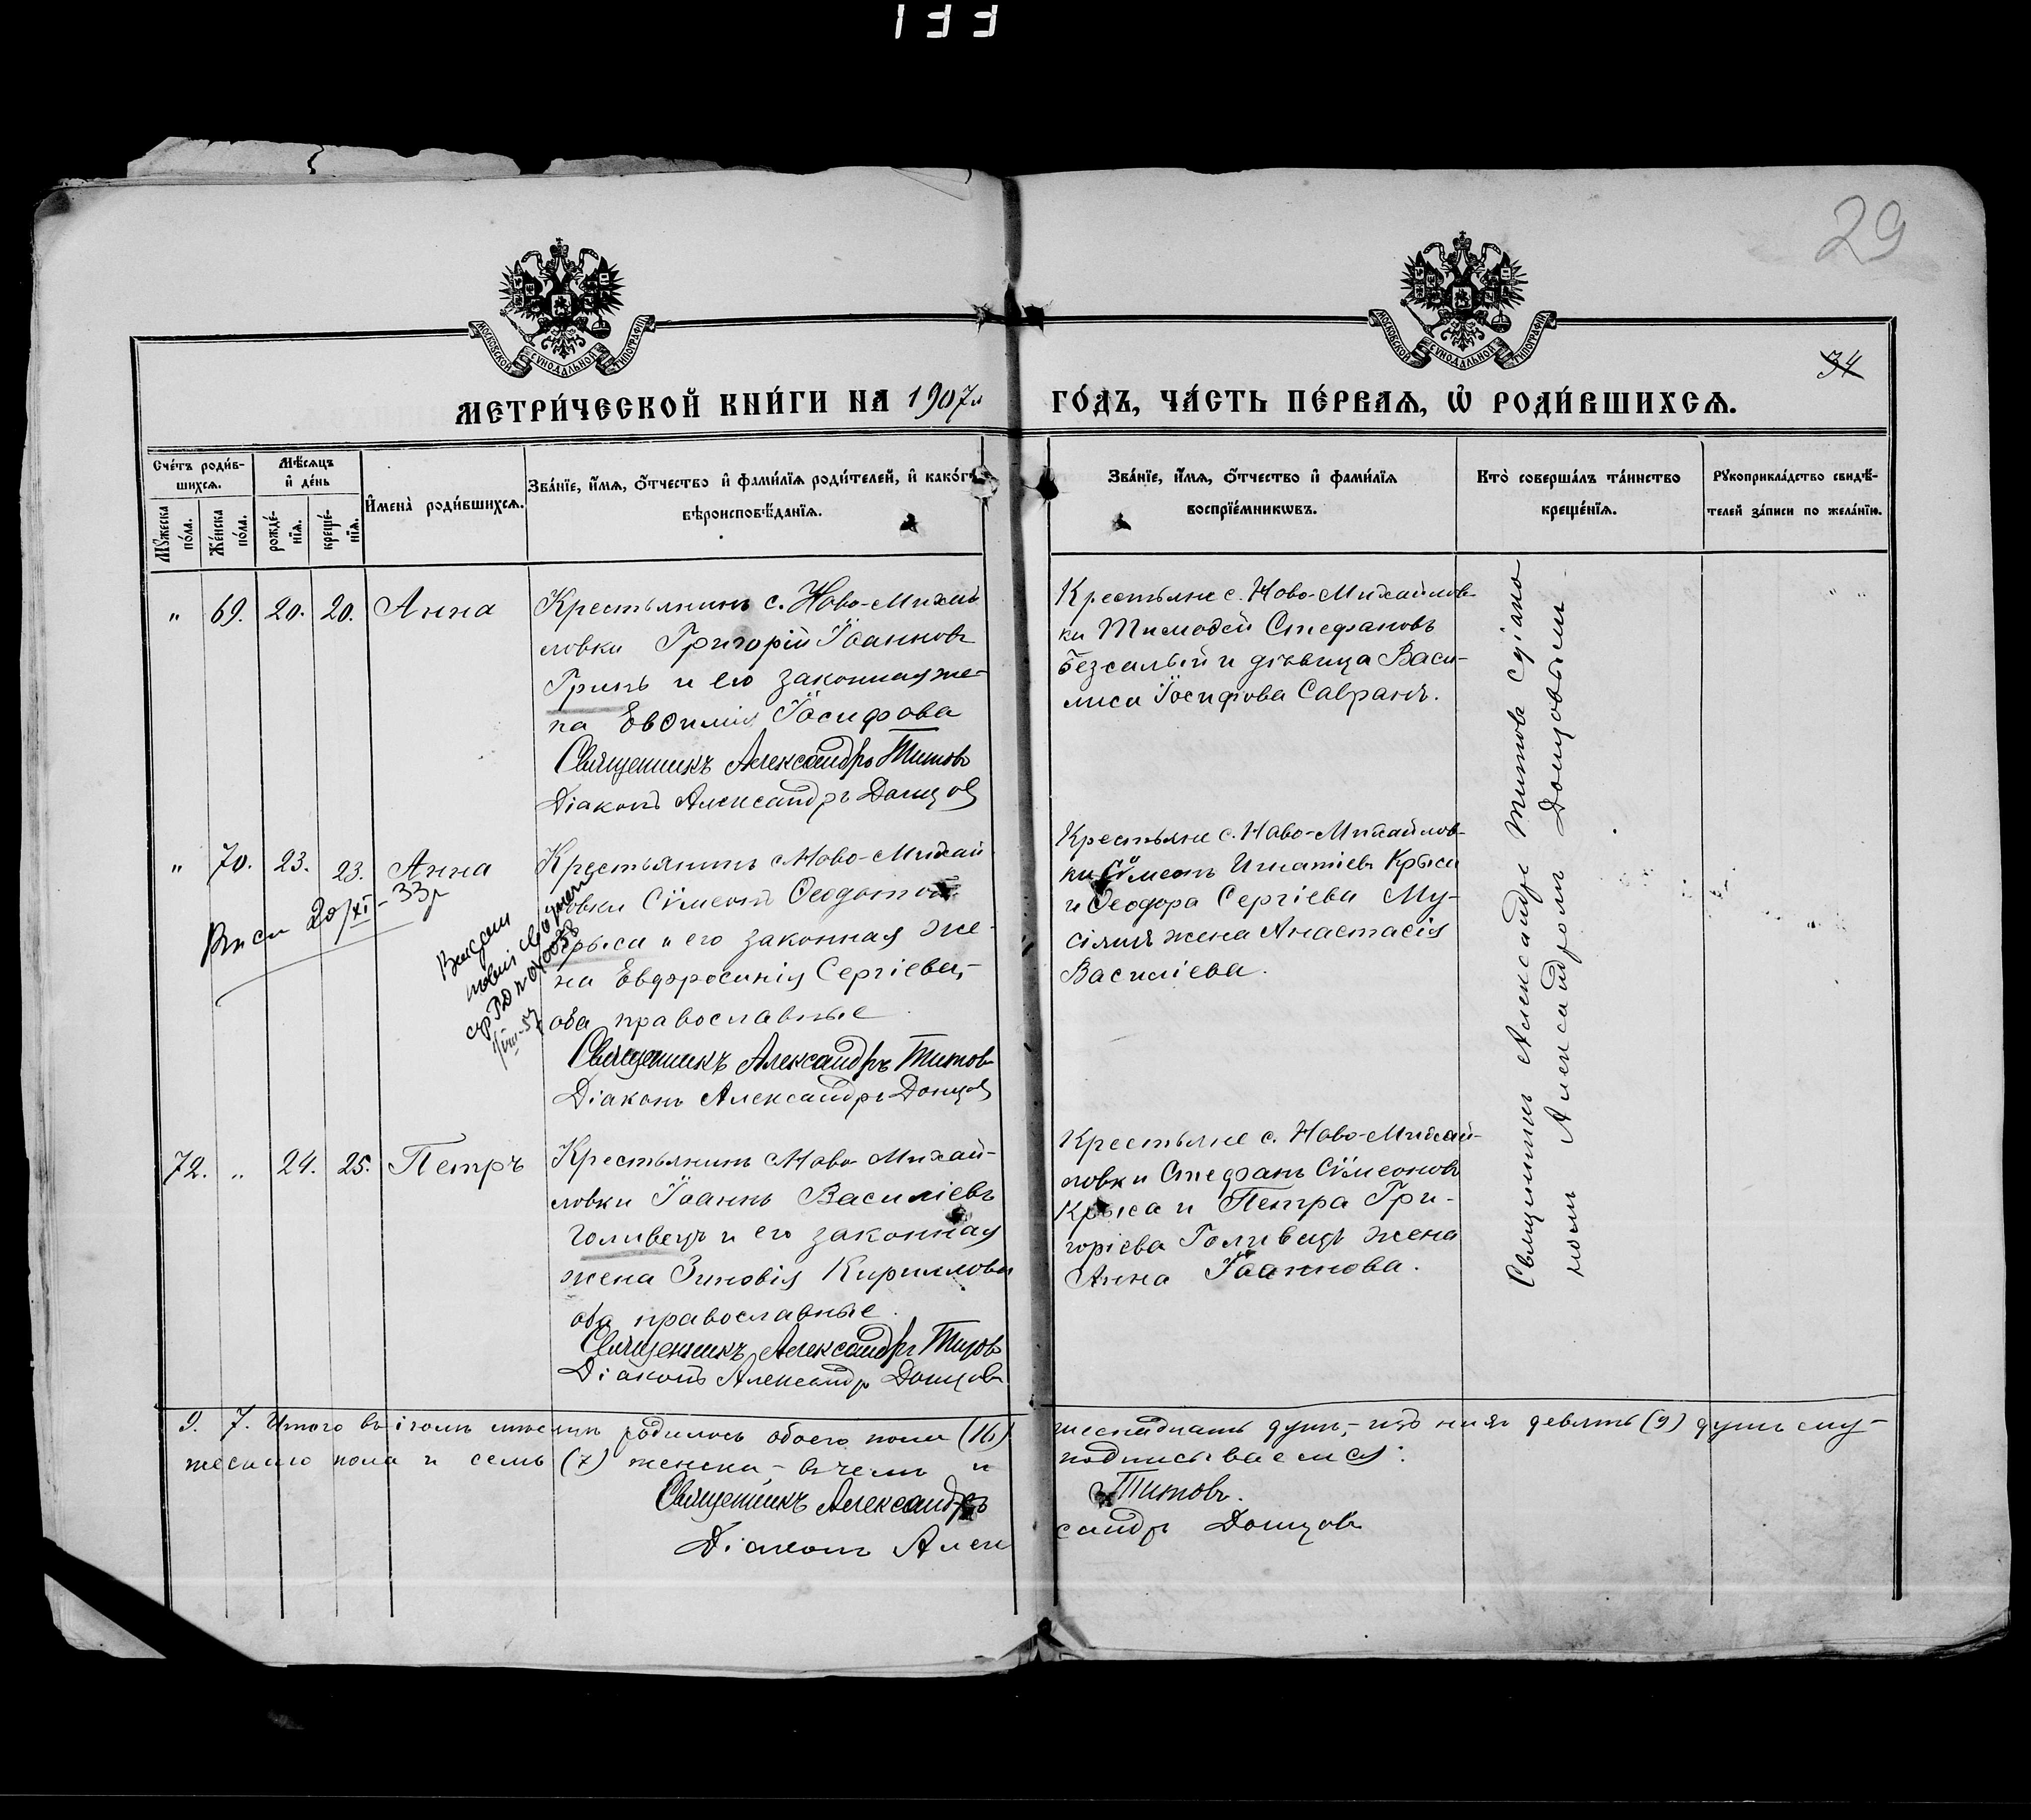 133
29
МОСКОВСКОЙ СѴНОДАЛЬНОЙ ТИПОГРАФІИ
МОСКОВСКОЙ СѴНОДАЛЬНОЙ ТИПОГРАФІИ
34
МЕТРИ́ЧЕСКОЙ КНИ́ГИ НА 1907й ГО́ДЪ, ЧА́СТЬ ПЕ́РВАЯ, Ѡ РОДИ́ВШИХСЯ.
Сче́тъ роди́в-
шихся.
Мꙋ́жеска по́ла.
Же́нска по́ла.
Мѣ́сяцъ и де́нь
рожде́-нїя.
креще́-нїя.
Имена̀ роди́вшихся.
Зва́нїе, и́мя, о́тчество и фами́лїя роди́телей, и како́гѡ
вѣроисповѣ́данїя.
Зва́нїе, и́мя, о́тчество и фами́лїя
воспрїе́мникѡвъ.
Кто̀ соверша́лъ та́инство
креще́нїя.
Рꙋкоприкла́дство свидѣ́-
телей за́писи по жела́нїю.
" 69. 20. 20. Анна
Крестьянинъ с. Ново-Михай
ловки Григорій Іоанновъ
Гринь и его законная же-
на Евѳимія Іосифова
Священникъ Александръ Титовъ
Діаконъ Александръ Донцовъ
Крестьяне с. Ново-Михайлов-
ки Тимоѳей Стефановъ
Безсалый и дѣвица Васи-
лиса Іосифова Савранъ.
" "
" 70. 23. 23. Анна
Крестьянинъ с Ново-Михай
ловки Сѵмеонъ Ѳеодотовъ
Крыса и его законная же-
на Евфросинія Сергіева,-
оба православные
Священникъ Александръ Титовъ
Діаконъ Александръ Донцовъ
20/XI - 33 р
Крестьяне с. Ново-Михайлов-
ки Сѵмеонъ Игнатіевъ Крыса
и Ѳеодора Сергіева Му-
сіяшъ жена Анастасія
Василіева.
72. " 24. 25. Петръ
Крестьянинъ с Ново Михай-
ловки Іоаннъ Василіевъ
Голивецъ и его законная
жена Зиновія Кириллова
оба православные.
Священникъ Александръ Титовъ
Діаконъ Александръ Донцовъ
Крестьяне с. Ново-Михай-
ловки Стефанъ Сѵмеоновъ
Крыса и Петра Гри-
горіева Голивецъ жена
Анна Іоаннова.
Священникъ Александръ Титовъ съ діако
номъ Александромъ Донцовымъ
9. 7. Итого въ мѣсяцѣ родилось обоего пола (16) шеснадцать душъ,- изъ нихъ девять (9) душъ му-
жескаго пола и семь (7) женска,- въ чемъ и подписываемся:
Священникъ Александръ Титовъ.
Діаконъ Александръ Донцовъ